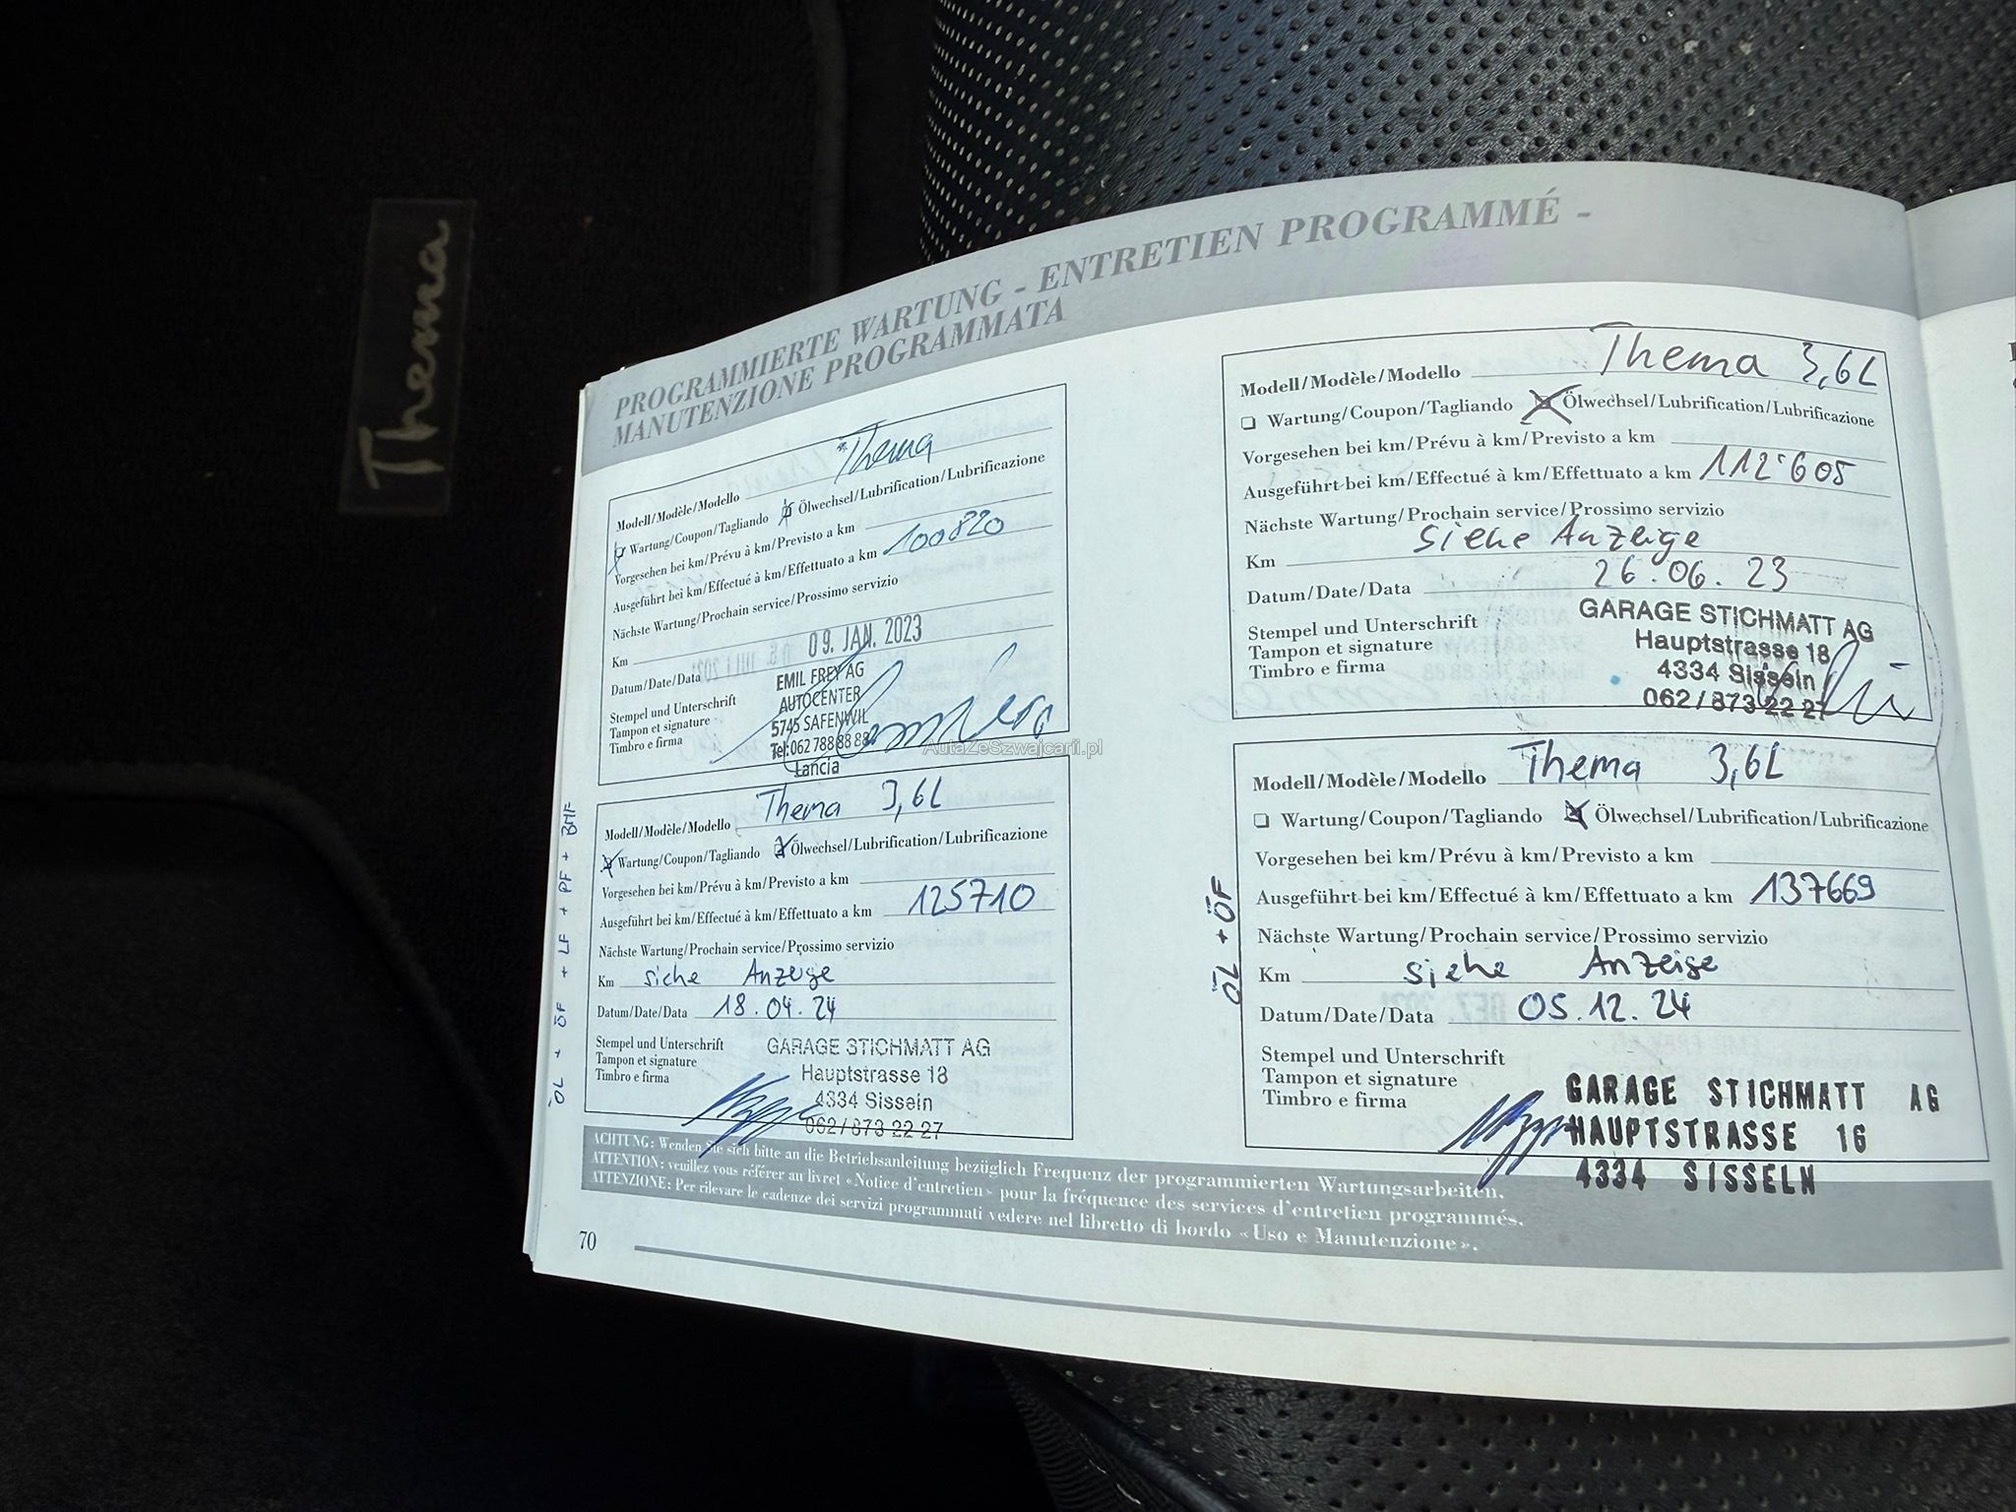 Thema
PROGRAMMIERTE WARTUNG - ENTRETIEN PROGRAMMÉ -
MANUTENZIONE PROGRAMMATA
Modell/Modèle/Modello Thema
Wartung/Coupon/Tagliando Ölwechsel/Lubrification/Lubrificazione
Vorgesehen bei km/Prévu à km/Previsto a km
Ausgeführt bei km/Effectué à km/Effettuato a km 100820
Nächste Wartung/Prochain service/Prossimo servizio
Km
Datum/Date/Data 09. JAN. 2023
Stempel und Unterschrift
Tampon et signature
Timbro e firma
EMIL FREY AG
AUTOCENTER
5745 SAFENWIL
Tel: 062 788 88 88
Lancia
Modell/Modèle/Modello Thema 3,6L
Wartung/Coupon/Tagliando Ölwechsel/Lubrification/Lubrificazione
Vorgesehen bei km/Prévu à km/Previsto a km
Ausgeführt bei km/Effectué à km/Effettuato a km 112'605
Nächste Wartung/Prochain service/Prossimo servizio
Km siehe Anzeige
Datum/Date/Data 26.06.23
Stempel und Unterschrift
Tampon et signature
Timbro e firma
GARAGE STICHMATT AG
Hauptstrasse 18
4334 Sisseln
062/873 22 27
AutaZeSzwajcarii.pl
ÖL + ÖF + LF + PF + BHF
Modell/Modèle/Modello Thema 3,6L
Wartung/Coupon/Tagliando Ölwechsel/Lubrification/Lubrificazione
Vorgesehen bei km/Prévu à km/Previsto a km
Ausgeführt bei km/Effectué à km/Effettuato a km 125710
Nächste Wartung/Prochain service/Prossimo servizio
Km siehe Anzeige
Datum/Date/Data 18.04.24
Stempel und Unterschrift
Tampon et signature
Timbro e firma
GARAGE STICHMATT AG
Hauptstrasse 18
4334 Sisseln
062/873 22 27
ÖL + ÖF
Modell/Modèle/Modello Thema 3,6L
Wartung/Coupon/Tagliando Ölwechsel/Lubrification/Lubrificazione
Vorgesehen bei km/Prévu à km/Previsto a km
Ausgeführt bei km/Effectué à km/Effettuato a km 137669
Nächste Wartung/Prochain service/Prossimo servizio
Km siehe Anzeige
Datum/Date/Data 05.12.24
Stempel und Unterschrift
Tampon et signature
Timbro e firma
GARAGE STICHMATT AG
HAUPTSTRASSE 16
4334 SISSELN
ACHTUNG: Wenden Sie sich bitte an die Betriebsanleitung bezüglich Frequenz der programmierten Wartungsarbeiten.
ATTENTION: veuillez vous référer au livret «Notice d'entretien» pour la fréquence des services d'entretien programmés.
ATTENZIONE: Per rilevare le cadenze dei servizi programmati vedere nel libretto di bordo «Uso e Manutenzione».
70